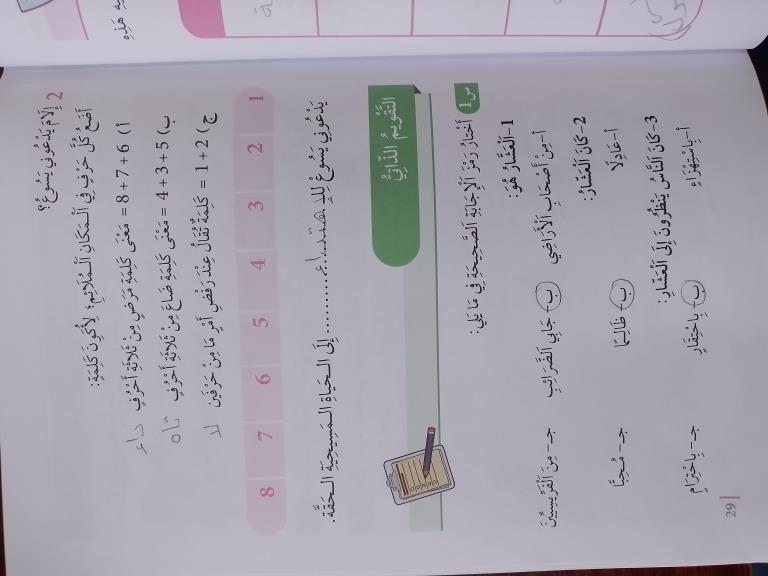 2 إِلَامَ يَدْعُونِي يَسُوعُ؟
أَضَعُ كُلَّ حَرْفٍ فِي الْمَكَانِ الْمُلَائِمِ؛ لِأُكَوِّنَ كَلِمَةِ:
أ) 6 + 7 + 8 = مَعْنَى كَلِمَةِ مَرَضٍ مِنْ ثَلَاثَةِ أَحْرُفٍ داء
ب) 5 + 3 + 4 = مَعْنَى كَلِمَةِ ضَاعَ مِنْ ثَلَاثَةِ أَحْرُفٍ تاه
ج) 2 + 1 = كَلِمَةٌ تُقَالُ عِنْدَ رَفْضِ أَمْرٍ مَا مِنْ حَرْفَيْنِ لا
1 2 3 4 5 6 7 8
يَدْعُونِي يَسُوعُ لِلاهتداء إِلَى الْحَيَاةِ الْمَسِيحِيَّةِ الْحَقَّةِ.
التَّقْوِيمُ الذَّاتِيُّ
س1 أَخْتَارُ رَمْزَ الْإِجَابَةِ الصَّحِيحَةِ فِي مَا يَلِي:
1- الْعَشَّارُ هُوَ:
أ- مِنْ أَصْحَابِ الْأَرَاضِي ب- جَابِي الضَّرَائِبِ جـ- مِنَ الْفَرِّيسِيِّينَ
2- كَانَ الْعَشَّارُ:
أ- عَادِلًا ب- ظَالِمًا جـ- مُحِبًّا
3- كَانَ النَّاسُ يَنْظُرُونَ إِلَى الْعَشَّارِ:
أ- بِاسْتِهْزَاءٍ ب- بِاحْتِقَارٍ جـ- بِاحْتِرَامٍ
29